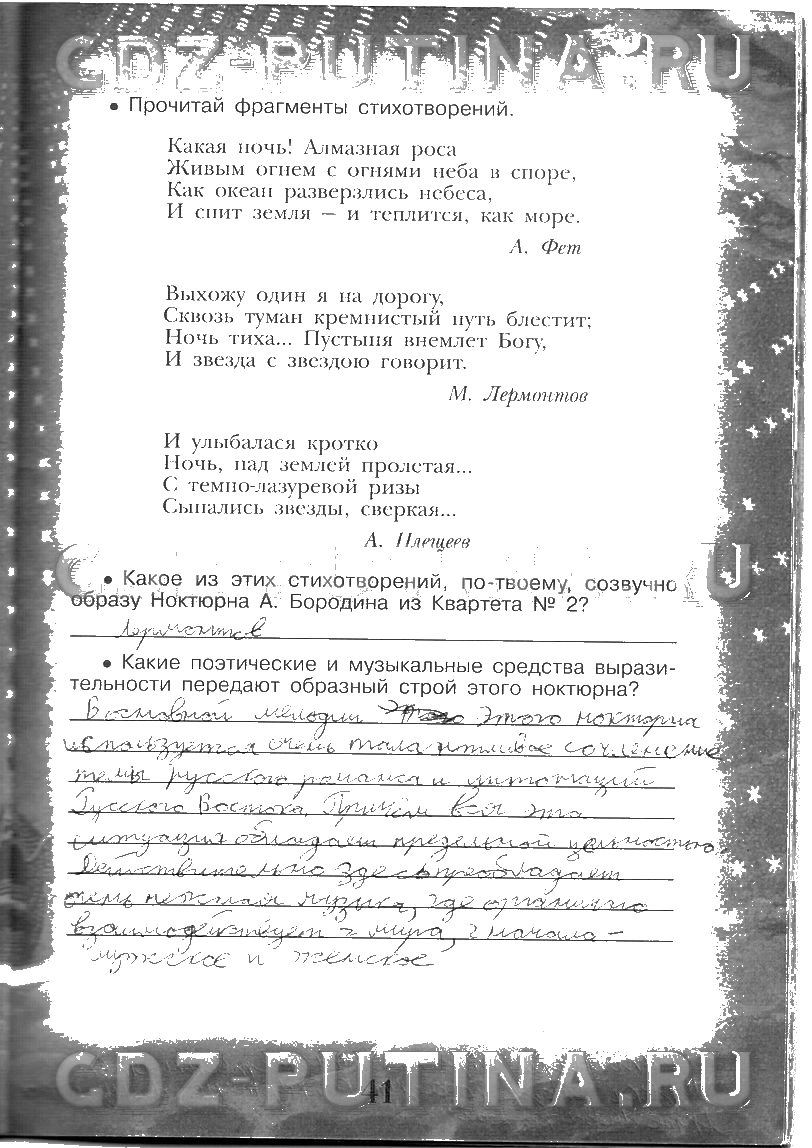 GDZ-PUTINA.RU
• Прочитай фрагменты стихотворений.
Какая ночь! Алмазная роса
Живым огнем с огнями неба в споре,
Как океан разверзлись небеса,
И спит земля – и теплится, как море.
А. Фет
Выхожу один я на дорогу,
Сквозь туман кремнистый путь блестит;
Ночь тиха... Пустыня внемлет Богу,
И звезда с звездою говорит.
М. Лермонтов
И улыбалася кротко
Ночь, над землей пролетая...
С темно-лазуревой ризы
Сыпались звезды, сверкая...
А. Плещеев
• Какое из этих стихотворений, по-твоему, созвучно
образу Ноктюрна А. Бородина из Квартета № 2?
Лермонтов
• Какие поэтические и музыкальные средства вырази-
тельности передают образный строй этого ноктюрна?
В основной мелодии этого ноктюрна
используется очень талантливое сочленение
темы русского романса и интонаций
Русского Востока. Причём вся эта
ситуация обладает предельной цельностью.
Действительно здесь преобладает
очень нежная музыка, где органично
взаимодействует 2 мира, 2 начала –
мужское и женское
41
GDZ-PUTINA.RU